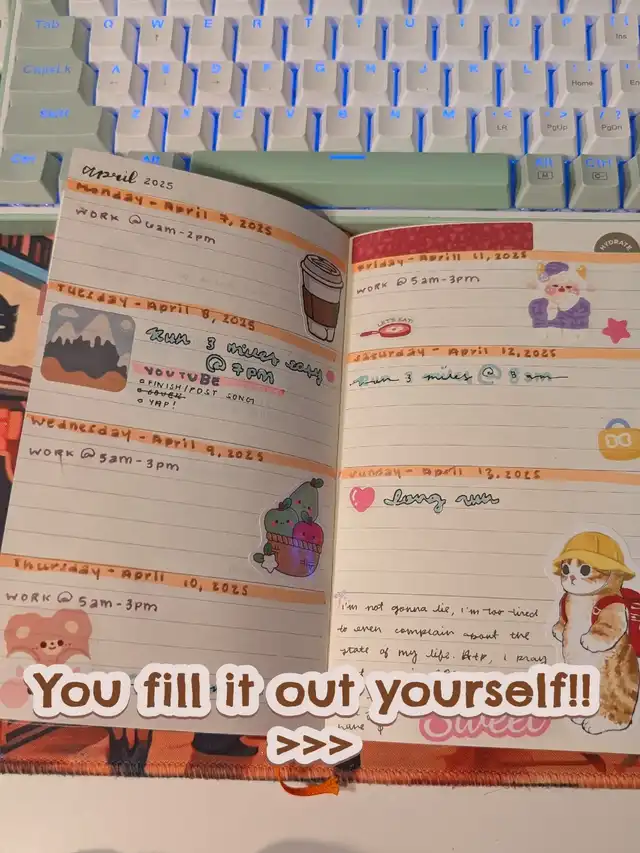 april 2025
Monday - April 7, 2025
WORK @ 6am-2pm
Tuesday - April 8, 2025
Run 3 miles easy
@ 7pm
YOUTUBE
FINISH/POST SONG
COVER
YAP!
Wednesday - April 9, 2025
WORK @ 5am-3pm
Thursday - April 10, 2025
WORK @ 5am-3pm
HYDRATE
Friday - April 11, 2025
WORK @ 5am-3pm
LET'S EAT!
Saturday - April 12, 2025
Run 3 miles @ 8am
Sunday - April 13, 2025
Long run
i'm not gonna lie, i'm too tired
to even complain about the
state of my life. But, i pray
Sweet
You fill it out yourself!!
>>>
Tab Q W E R T Y U I O P
CapsLk A S D F G H J K L Home End
Shift Z X C V B N M PgUp PgDn
Ctrl Alt Alt Ctrl